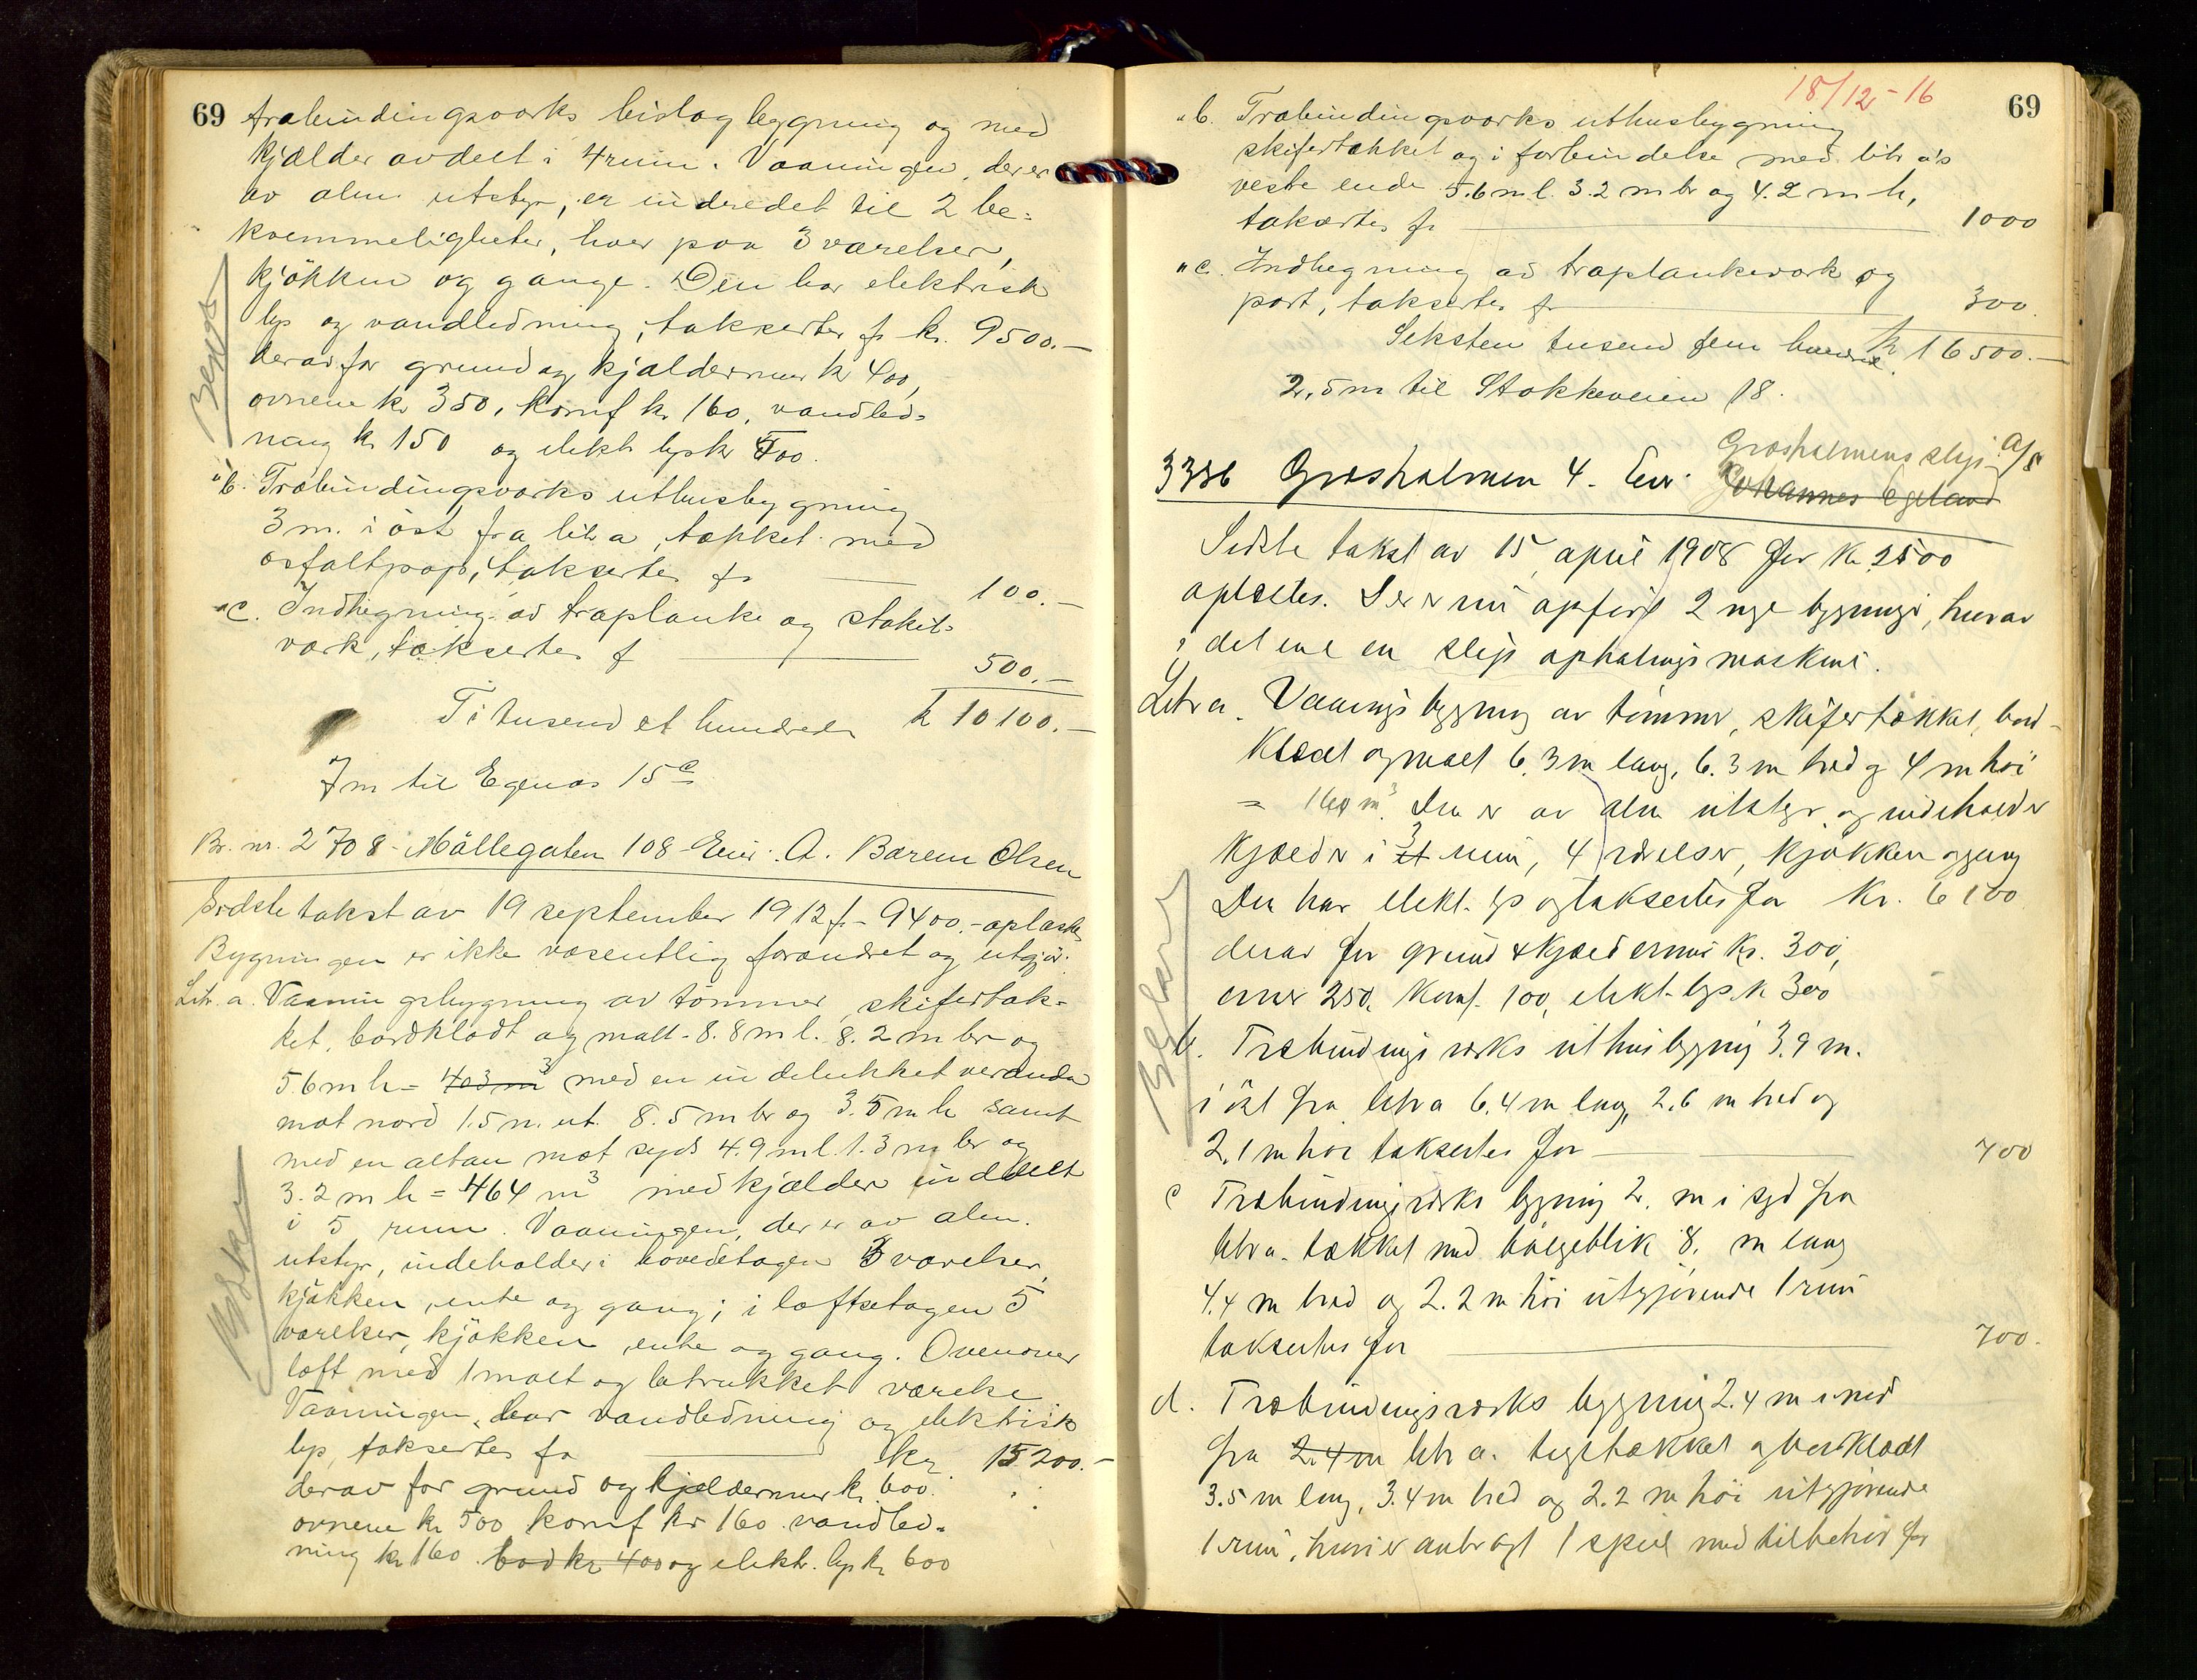 69
træbindingsværks bislag bygning og med
kjælder avdelt i 4 rum. Vaaningen, der er
av alm. utstyr, er indredet til 2 be-
kvemmeligheter, hver paa 3 værelser,
kjökken og gange. Den har elektrisk
lys og vandledning, takserter fr kr. 9500.-
derav for grund og kjældermur kr 400,
ovnene kr 350, komf kr. 160, vandled-
ning kr 150 og elekt lys kr 400.
"b. Træbindingsværks uthusbygning
3 m. i öst fra litr a, tækket med
asfaltpap, takserter fr 100.-
"c. Indhegning av træplanke og stakit-
værk, takserter f 500.-
Ti tusend et hundrede kr 10100.-
7 m til Egenæs 15c
Br. nr. 2708 - Möllegaten 108 Eier: A. Barem Olsen
Sidste takst av 19 september 1912 fr 9400.- oplæstes
Bygningen er ikke væsentlig forandret og utgjör:
Litr. a. Vaaningsbygning av tömmer, skifertæk-
ket, bordklædt og malt - 8.8 m l. 8.2 m br og
5.6 m h = 403 m3 med en indelukket veranda
mot nord 1.5 m. ut. 8.5 m br og 3.5 m h samt
med en altan mot syd 4.9 m l. 1.3 m br og
3.2 m h = 464 m3 med kjælder inddelt
i 5 rum. Vaaningen, der er av alm.
utstyr, indeholder i hovedetagen 3 værelser,
kjökken, ente og gang; i loftsetagen 5
værelser, kjökken, ente og gang. Ovenover
loft med 1 malt og betrukket værelse
Vaaningen har vandledning og elektrisk
lys, takserter fr kr. 15200.-
derav for grund og kjældermur kr. 600.
ovnene kr 500 komf kr 160 vandled-
ning kr 160 bad kr 400 og elektr. lys kr 600
18/12-16
69
"b. Træbindingsværks uthusbygning
skifertækket og i forbindelse med litr a's
vestre ende 5.6 m l. 3.2 m br og 4.2 m h,
takserter fr 1000
"c. Indhegning av træplankeværk og
port, takserter fr 300.
Seksten tusend fem hundrede kr 16500.-
2,5 m til Stokkeveien 18.
Græsholmens slip A/S
3336 Græsholmen 4. Eier: Johannes Egeland
Sidste takst av 15 april 1908 for Kr. 2500
oplæstes. Der er nu opfört 2 nye bygninger, hvorav
i det ene en slips ophalingsmaskine.
Litr a. Vaaningsbygning av tömmer, skifertækket, bord-
klædt og malt 6.3 m lang, 6.3 m bred og 4 m höi
= 160 m3. Den er av alm utstyr og indeholder
kjælder i 3 et rum, 4 værelser, kjökken og gang
Den har elekt. lys og takserter for Kr. 6100
derav for grund & kjældermur Kr. 300,
ovner 250, Komf. 100, elekt. lys k 300
b. Træbindingsværks uthusbygning 3.9 m.
i öst fra litr a 6.4 m lang, 2.6 m bred og
2.1 m höi takserter for 700
c Træbindingsværks bygning 2. m i syd fra
litr a. tækket med bölgeblik 8. m lang
4.4 m bred og 2.2 m höi utgjörende 1 rum
takserter for 700.
d. Træbindingsværks bygning 2.4 m i nord
fra 2.4 m litr a. teglstækket og bordklædt
3.5 m lang, 3.4 m bred og 2.2 m höi utgjörende
1 rum, hvori er anbragt 1 spil med tilbehör for